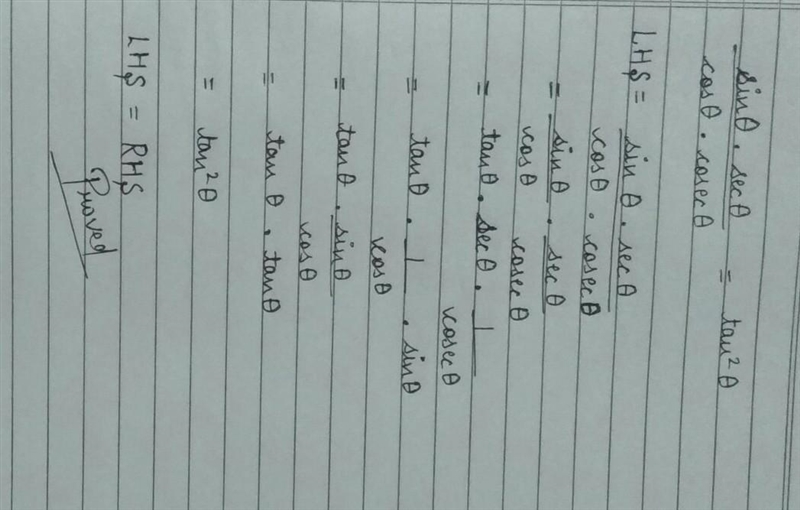 sinθ . secθ / cosθ . cosecθ = tan²θ
LHS = sinθ . secθ / cosθ . cosecθ
= sinθ / cosθ . secθ / cosecθ
= tanθ . secθ . 1 / cosecθ
= tanθ . 1 / cosθ . sinθ
= tanθ . sinθ / cosθ
= tanθ . tanθ
= tan²θ
LHS = RHS
Proved